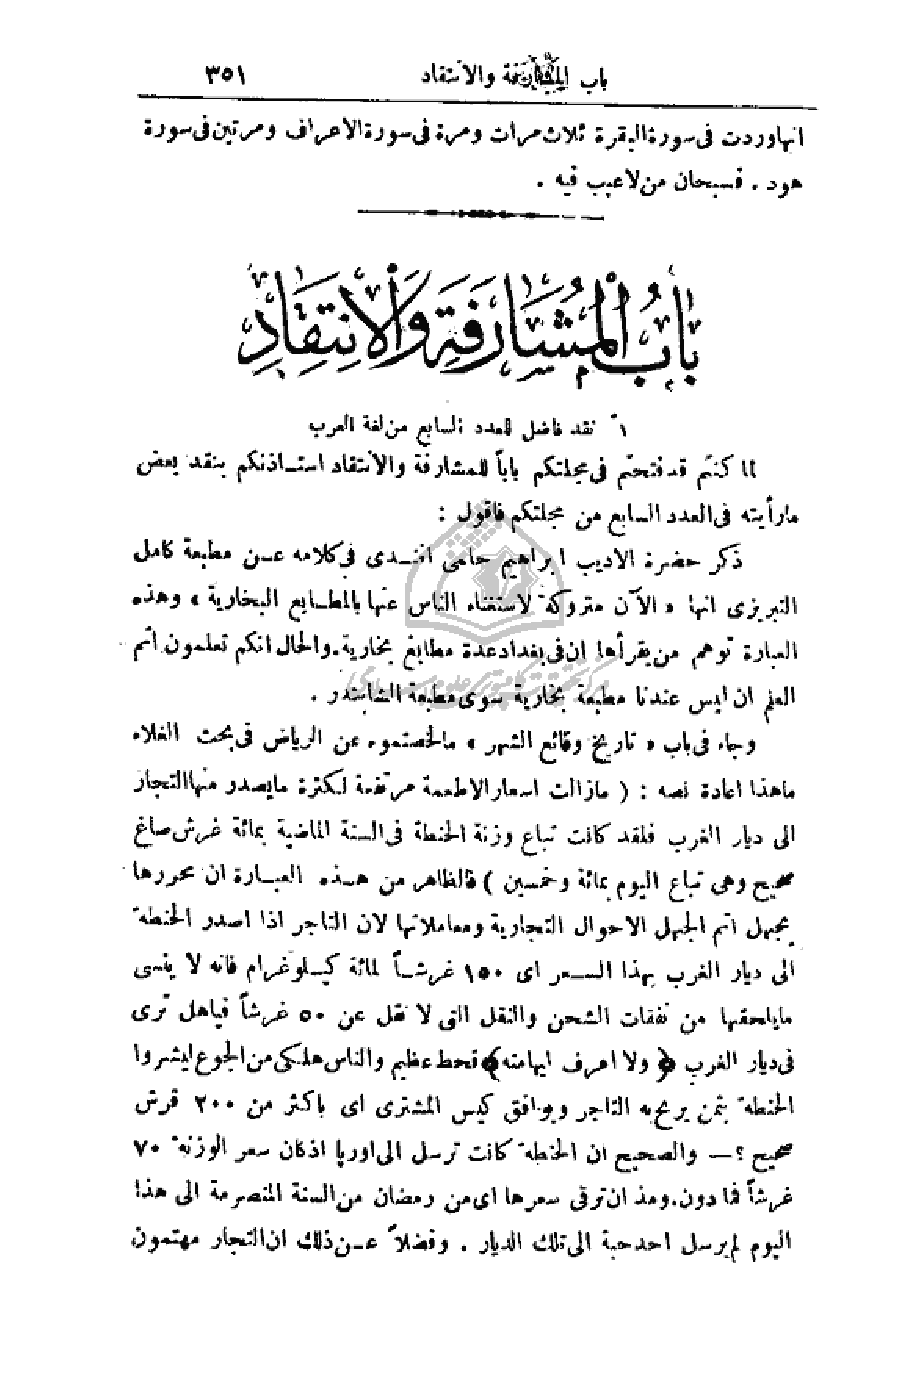 باب المشارفة والانتقاد ٣٥١
انها وردت فى سورة البقرة ثلاث مرات ومرة فى سورة الاعراف ومرتين فى سورة
هود . فسبحان من لا عيب فيه .
بَابُ المُشَارَفَةِ وَالاِنتِقَادِ
١ً نقد فاضل للعدد السابع من لغة العرب
لما كنتم قد فتحتم فى مجلتكم باباً للمشارفة والانتقاد استــاذنكم بنقد بعض
ما رأيته فى العدد السابع من مجلتكم فاقول :
ذكر حضرة الاديب ابراهيم حلمى افنــدى فى كلامه عـن مطبعة كامل
التبريزى انها « الآن متروكة لاستغناء الناس عنها بالمطـابع البخارية » وهذه
العبارة توهم من يقرأها ان فى بغداد عدة مطابع بخارية . والحال انكم تعلمون اتم
العلم ان ليس عندنا مطبعة بخارية سوى مطبعة الشابندر .
وجاء فى باب « تاريخ وقائع الشهر » ما لخصتموه عن الرياض فى بحث الغلاء
ما هذا اعادة نصه : ( ما زالت اسعار الاطعمة مرتفعة لكثرة ما يصدر منها التجار
الى ديار الغرب فلقد كانت تباع وزنة الحنطة فى السنة الماضية بمائة غرش صاغ
صحيح وهى تباع اليوم بمائة وخمسين ) فالظاهر من هـذه العبـارة ان محررها
يجهل اتم الجهل الاحوال التجارية ومعاملاتها لان التاجر اذا اصدر الحنطة
الى ديار الغرب بهذا السـعر اى ١٥٠ غرشـاً لمائة كيـلوغرام فانه لا ينسى
ما يلحقها من نفقات الشحن والنقل التى لا تقل عن ٥٠ غرشاً فياهل ترى
فى ديار الغرب ﴿ ولا اعرف ايهامته ﴾ قحط عظيم والناس هلكى من الجوع ليشروا
الحنطة بثمن يربح به التاجر ويوافق كيس المشترى اى باكثر من ٢٠٠ قرش
صحيح ؟ — والصحيح ان الحنطة كانت ترسل الى اوربا اذ كان سعر الوزنة ٧٠
غرشاً فما دون . ومذ ان ترقى سعرها اى من رمضان من السنة المنصرمة الى هذا
اليوم لم يرسل احد حبة الى تلك الديار . وفضلاً عـن ذلك ان التجار مهتمون